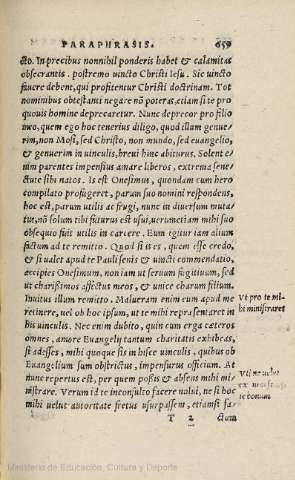 PARAPHRASIS. 659
cto. In precibus nonnihil ponderis habet & calamitas
obsecrantis. postremo uincto Christi Iesu. Sic uinctis
fauere debent, qui profitentur Christi doctrinam. Tot
nominibus obtestanti negare nō poteras, etiam si te pro
quouis homine deprecaretur. Nunc deprecor pro filio
meo, quem ego hoc tenerius diligo, quod illum genue-
rim, non Mosi, sed Christo, non mundo, sed euangelio,
& genuerim in uinculis, breui hinc abiturus. Solent e-
nim parentes impensius amare liberos, extrema sene-
ctute sibi natos. Is est Onesimus, quondam cum hero
compilato profugeret, parum suo nomini respondens,
hoc est, parum utilis ac frugi, nunc in diuersum muta-
tus, nō solum tibi futurus est usui, uerumetiam mihi suo
obsequio fuit utilis in carcere. Eum igitur iam alium
factum ad te remitto. Quod si is es, quem esse credo,
& si ualet apud te Pauli senis & uincti commendatio,
accipies Onesimum, non iam ut seruum fugitiuum, sed
ut charissimos affectus meos, & unice charum filium.
Inuitus illum remitto. Malueram enim eum apud me
retinere, uel ob hoc ipsum, ut te mihi repræsentaret in
his uinculis. Nec enim dubito, quin cum erga ceteros
omnes, amore Euangelij tantum charitatis exhibeas,
si adesses, mihi quoque sis in hisce uinculis, quibus ob
Euangelium sum obstrictus, impensurus officium. At
nunc repertus est, per quem poßis & absens mihi mi-
nistrare. Verum id te inconsulto facere nolui, ne si hoc
mihi uelut autoritate fretus usurpassem, etiamsi fa-
T 2 ctum
Vt pro te mi-
hi ministraret
Vti ne uelut
ex necessita
te bonum
Ministerio de Educación, Cultura y Deporte